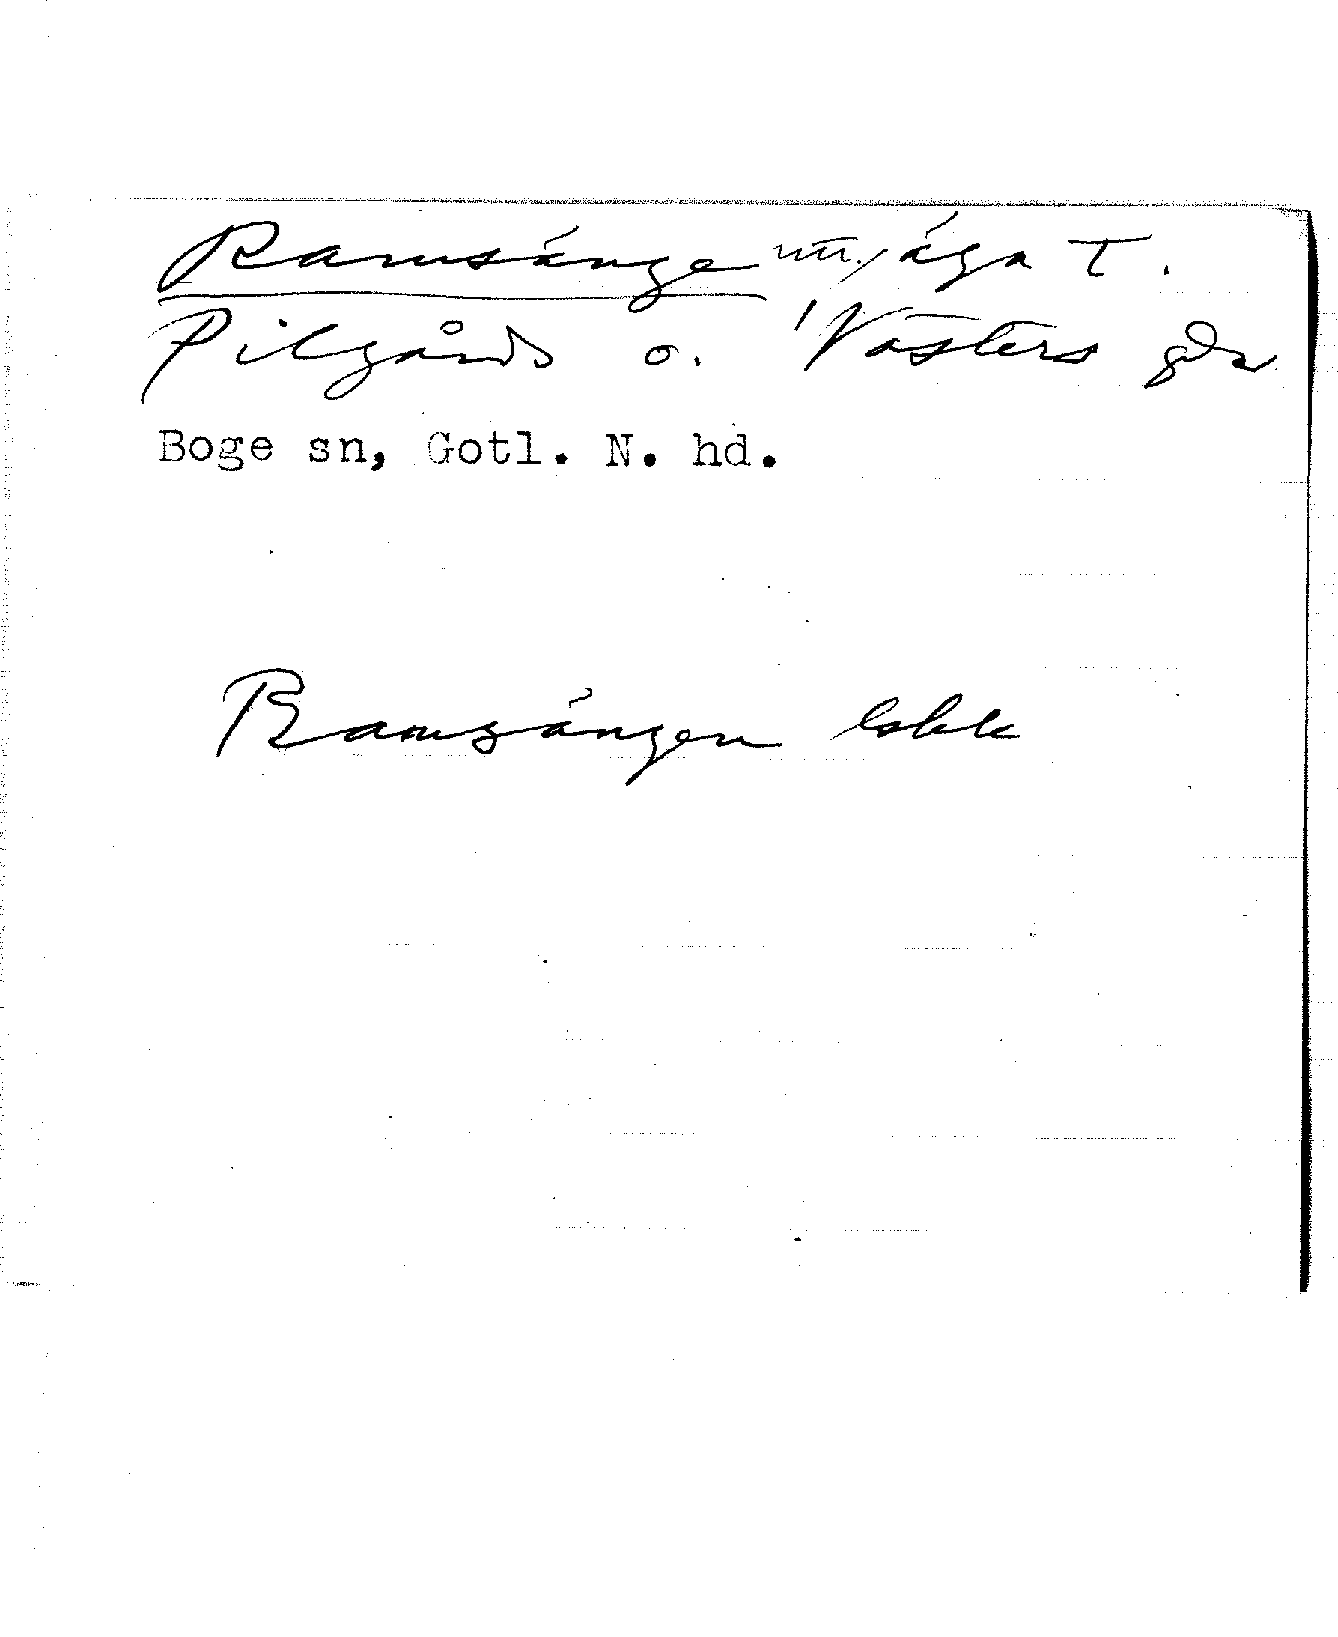 Ramsänge m., äga t.
Pilgårds o. Västers gdr
Boge sn, Gotl. N. hd.
Ramsängen Eskk